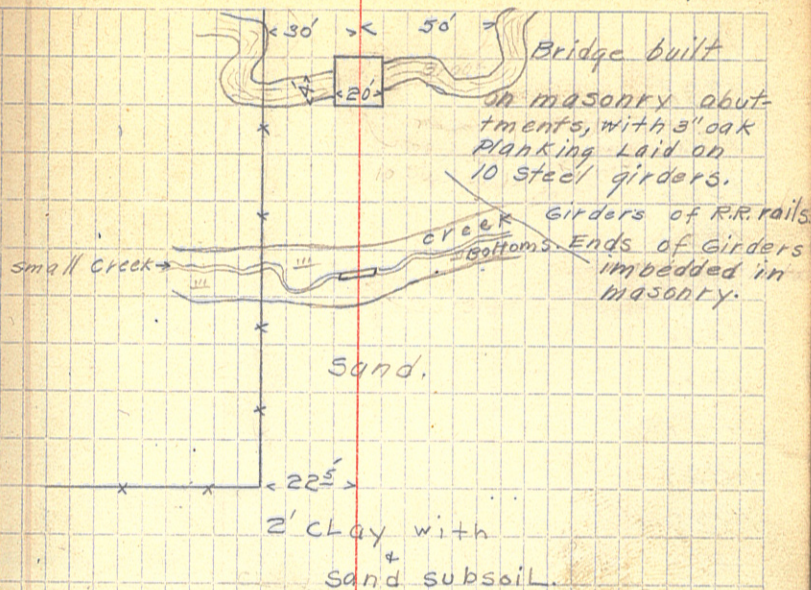 30' 50'
Bridge built
on masonry abut-
tments, with 3" oak
Planking Laid on
10 Steel girders.
4' 20'
Girders of R.R. rails.
creek
Bottoms. Ends of Girders
imbedded in
masonry.
small creek
Sand.
22 5'
2' CLay with
&
sand subsoil.